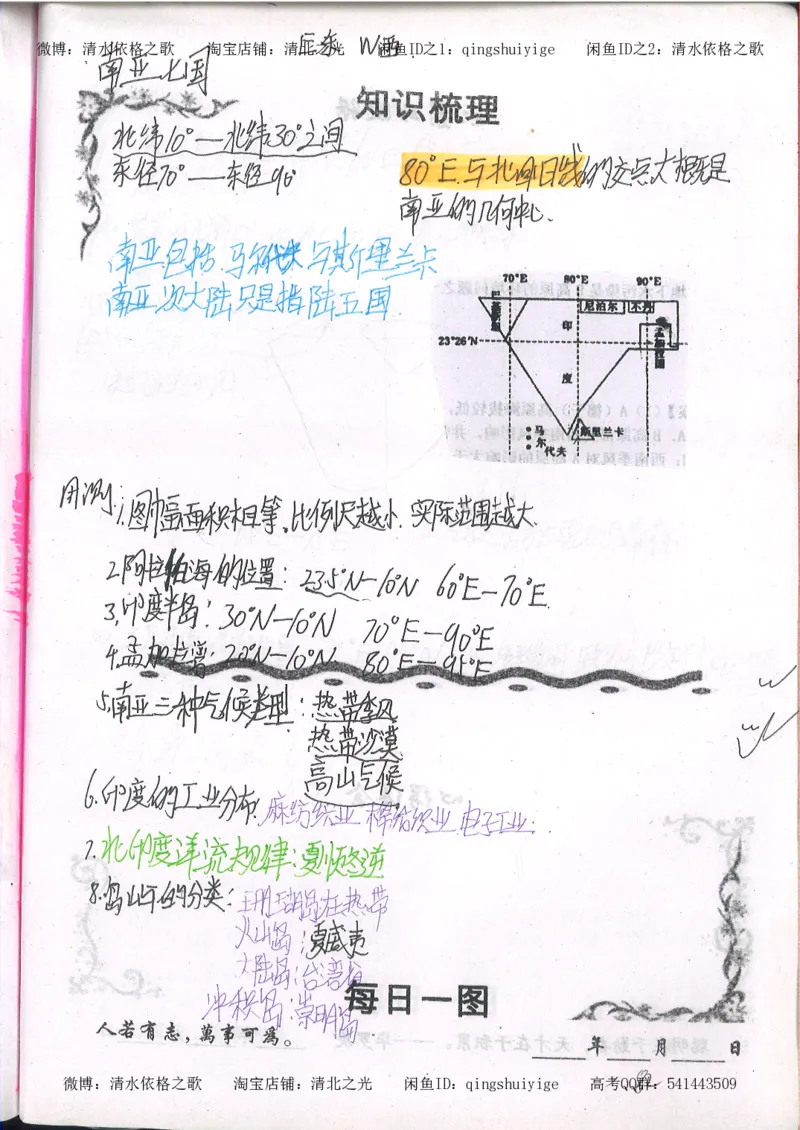 微博：清水依格之歌 淘宝店铺：清北之光 闲鱼ID之1：qingshuiyige 闲鱼ID之2：清水依格之歌
E东 W西
南亚七国
知识梳理
北纬10°—北纬30°之间
东经70°—东经90°
80°E.与北回归线的交点大概是
南亚的几何中心.
南亚包括.马尔代夫与斯里兰卡
南亚次大陆只是指陆五国
70°E 80°E 90°E
巴基斯坦
尼泊尔 不丹
孟加拉国
23°26′N
印
度
马尔代夫
斯里兰卡
1.图幅面积相等,比例尺越小.实际范围越大
2.阿拉伯海的位置：23.5°N—10°N 60°E—70°E.
3.印度半岛：30°N—10°N 70°E—90°E
4.孟加拉湾：22°N—10°N 80°E—95°E
5.南亚三种气候类型：热带季风
热带沙漠
高山气候
6.印度的工业分布.麻纺织业 棉纺织业.电子工业.
7.北印度洋流规律：夏顺冬逆
8.岛屿的分类：珊瑚岛在热带
火山岛：夏威夷
大陆岛：台湾省
冲积岛：崇明岛
每日一图
人若有志，萬事可爲。
年 月 日
微博：清水依格之歌 淘宝店铺：清北之光 闲鱼ID：qingshuiyige 高考QQ群：541443509